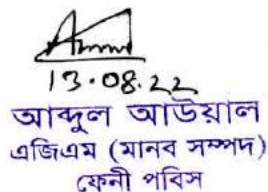 13.08.22
আব্দুল আউয়াল
এজিএম (মানব সম্পদ)
ফেনী পবিস